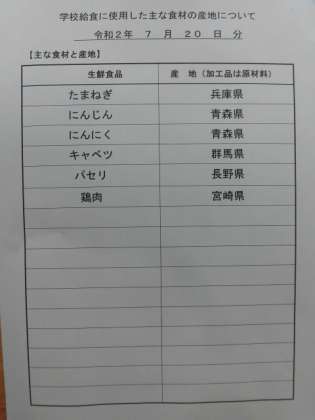 学校給食に使用した主な食材の産地について
令和2年 7 月 20 日 分
【主な食材と産地】
生鮮食品 産 地（加工品は原材料）
たまねぎ 兵庫県
にんじん 青森県
にんにく 青森県
キャベツ 群馬県
パセリ 長野県
鶏肉 宮崎県